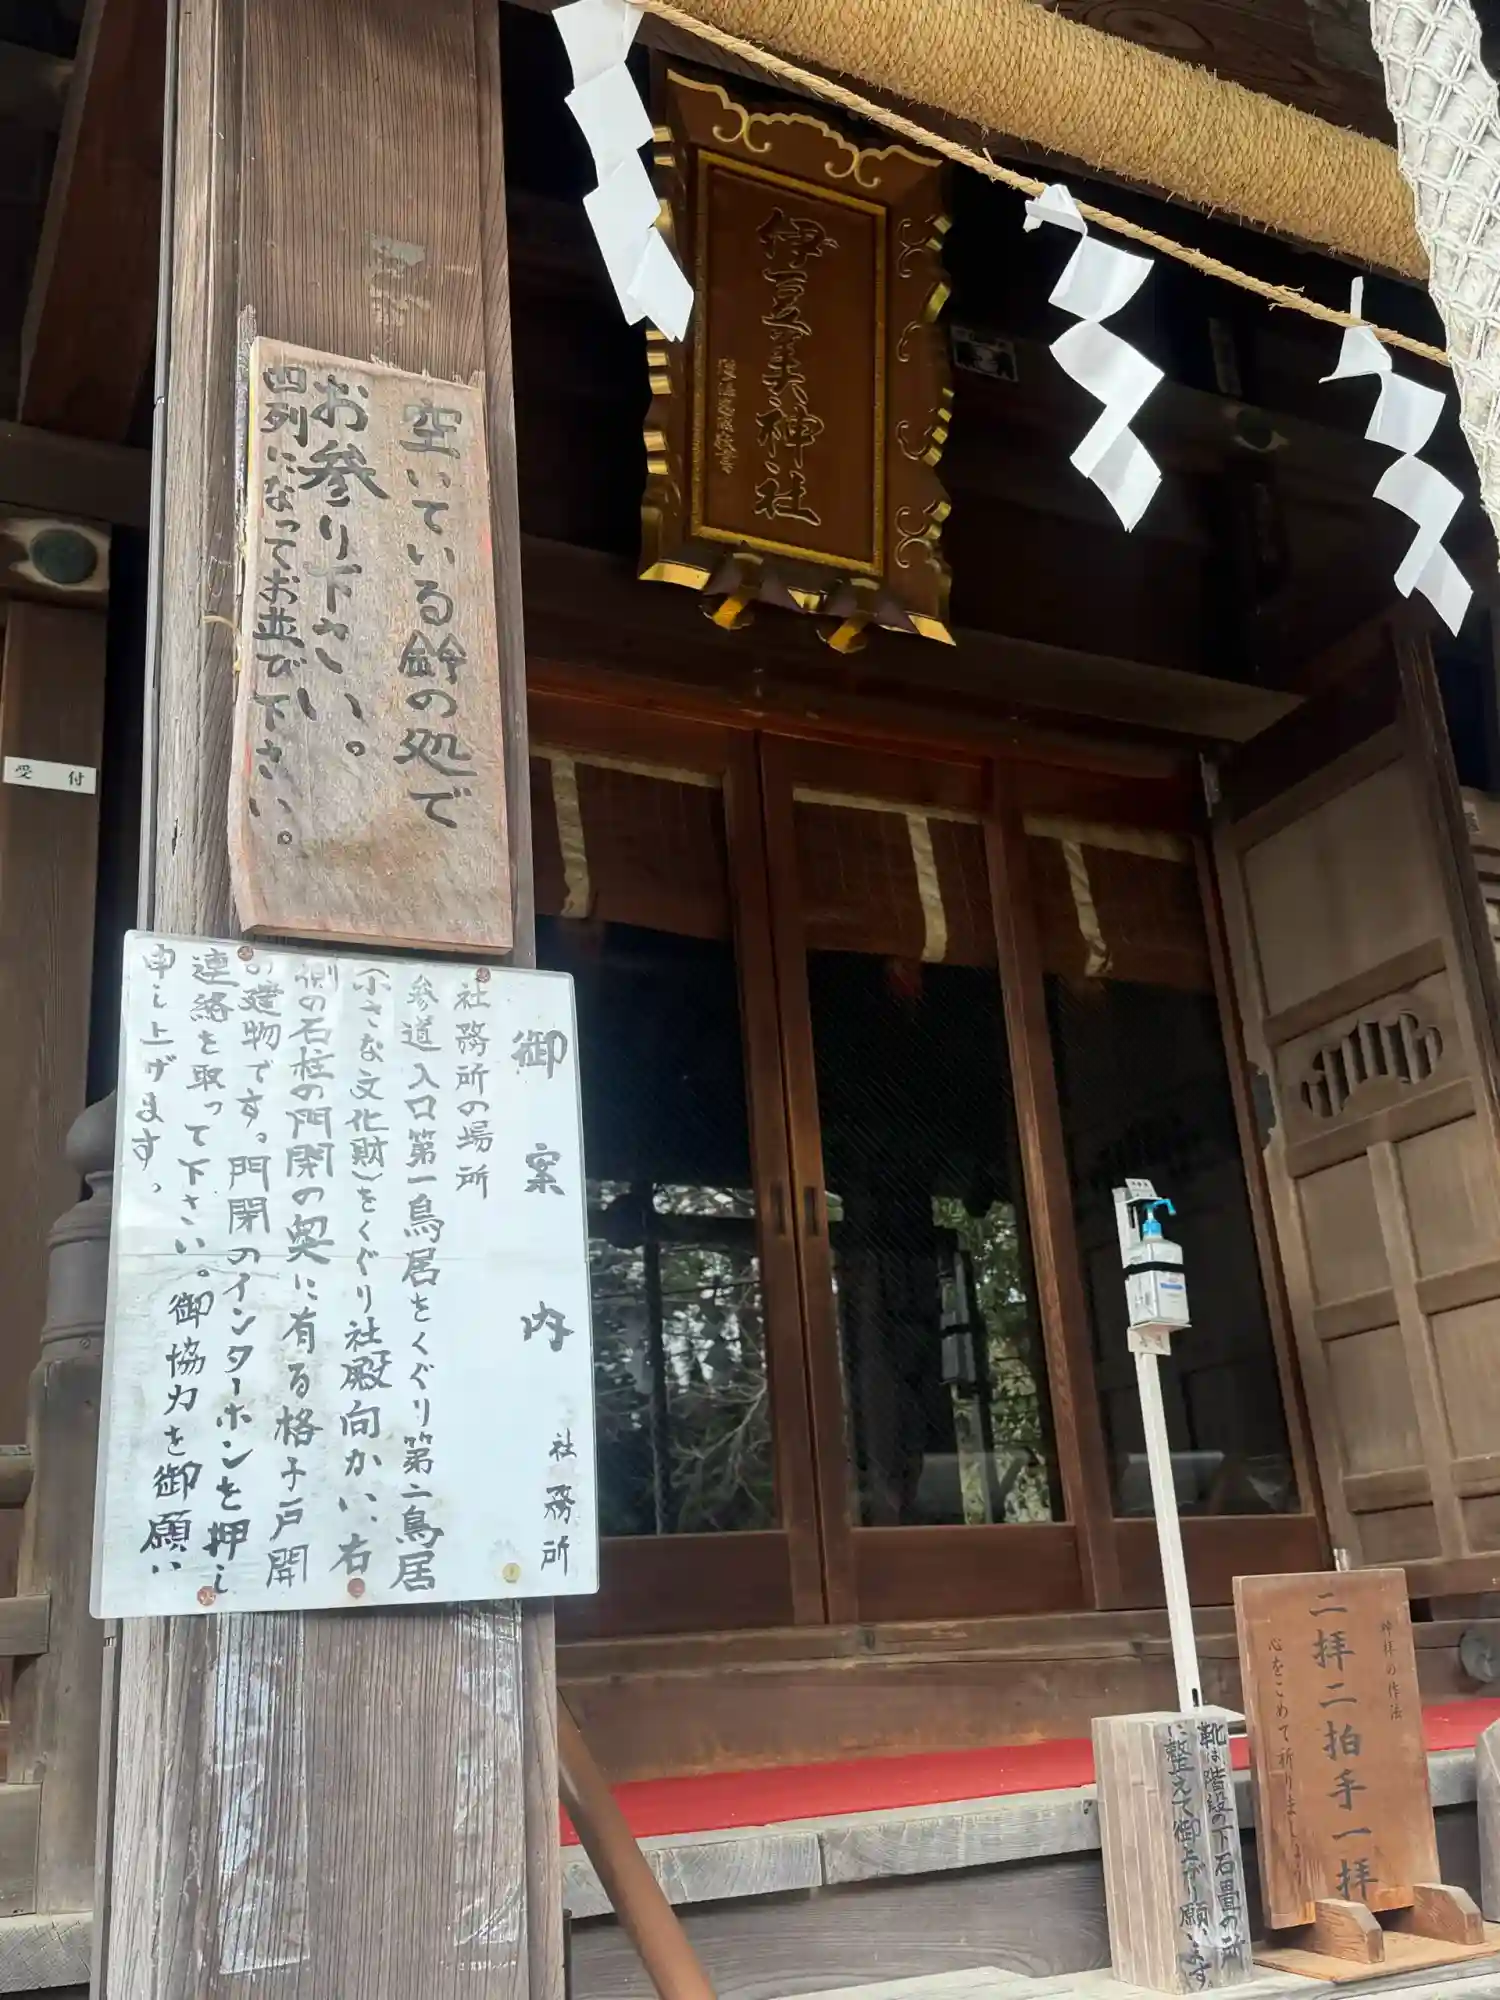 伊豆美神社
空いている鈴の処で
お参り下さい。
四列になってお並び下さい。
受付
御案内
社務所
社務所の場所
参道入口第一鳥居をくぐり第二鳥居
(小さな文化財)をくぐり社殿向かい、右
側の石柱の門開の奥に有る格子戸開
の建物です。門開のインターホンを押し
連絡を取って下さい。御協力を御願い
申し上げます。
靴は階段の下石畳の所
に整えて御上り願います
神拝の作法
二拝二拍手一拝
心をこめて祈りましょう